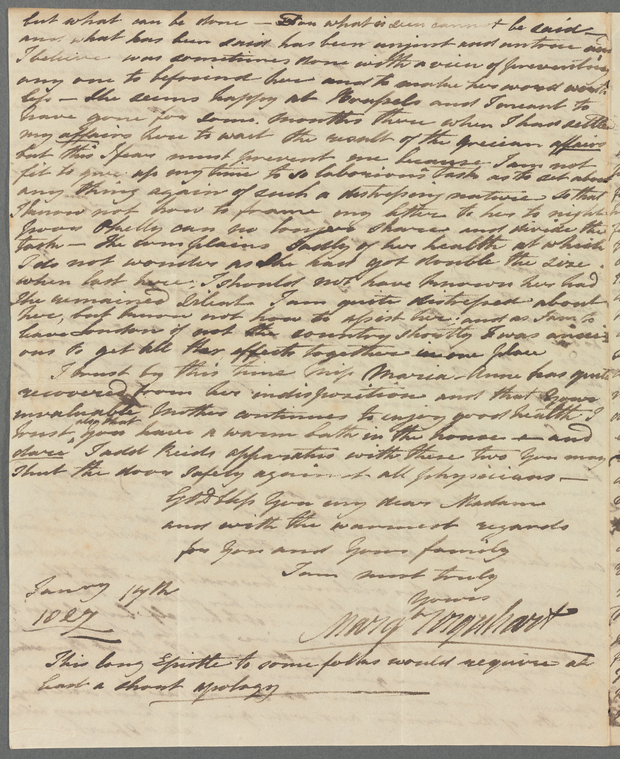 but what can be done — what is seen cannot be said —
and what has been said has been unjust and untrue and
I believe was sometimes done with a view of preventing
any one to befriend her and to make her word worth
less — She seems happy at Brussels and I meant to
have gone for some months there when I had settled
my affairs here to wait the result of the Grecian affairs
but this I fear must prevent me because I am not
fit to give up my time to so laborious Task as to set about
any thing again of such a distressing nature so that
I know not how to frame my letter to her to night
poor can no longer share and divide the
task — He complains Sadly of her health at which
I do not wonder as She had got double the size
when last here. I should not have known her had
She remained Silent I am quite distressed about
her, but know not how to assist her and as I am to
leave London if not the country shortly I was anxi
ous to get all her effects together in one place
I trust by this time Miss Maria-Anne has quite
recovered from her indisposition and that your
invaluable Mother continues to enjoy good health I
trust also that you have a warm bath in the house — and
dare I add Reids apparatus with these two you may
Shut the door Safely against all physicians —
God bless You my dear Madame
and with the warmest regards
for You and Your family
I am most truly
Yours
Margt Urquhart
Janry 14th
1827
This long Epistle to some folks would require at
least a short apology